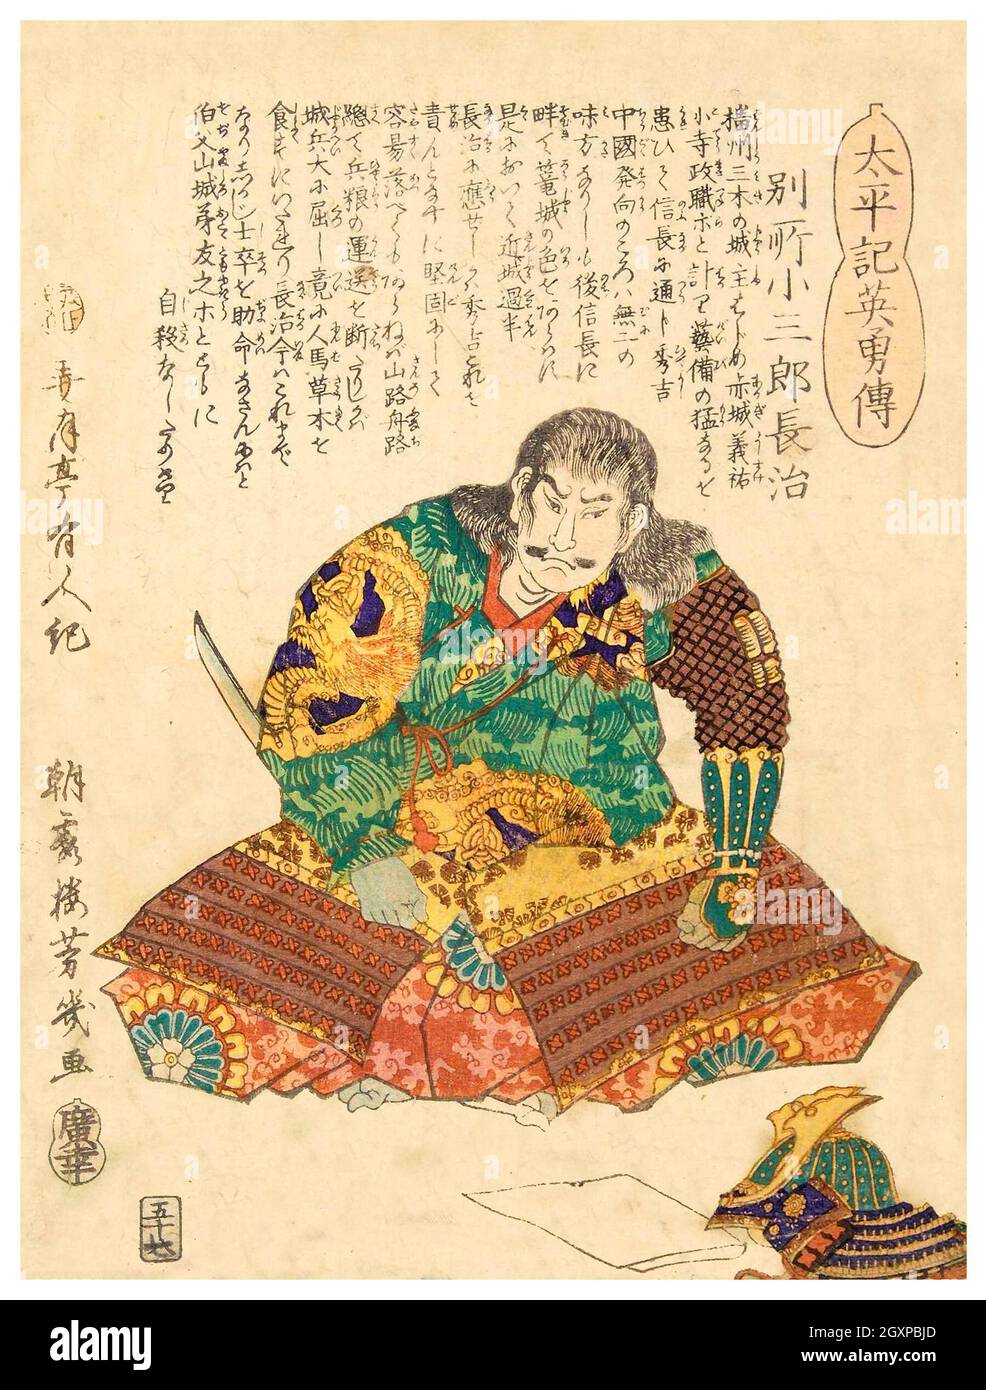 太平記英勇傳
別所小三郎長治
播州三木の城主はじめ赤城義祐
小寺政職ホと計り藝備の猛なるを
患ひて信長に通じ秀吉
中國発向のころハ無二の
味方なりしも後信長に
畔て篭城の色をあらハに
是において近城過半
長治に應ぜしかバ秀吉これを
責んとなすに堅固にして
容昜落べくもあらねバ山路舟路
隠て兵粮の運送を断たりしかバ
城兵大に屈し竟に人馬草木を
食すにいたれり長治今ハこれまで
士卒を助命なさん
伯父山城弟友之ホとともに
自殺なし
亭有人紀
朝霞楼芳幾画
廣幸
五十七
alamy
Image ID: 2GXPBJD
www.alamy.com